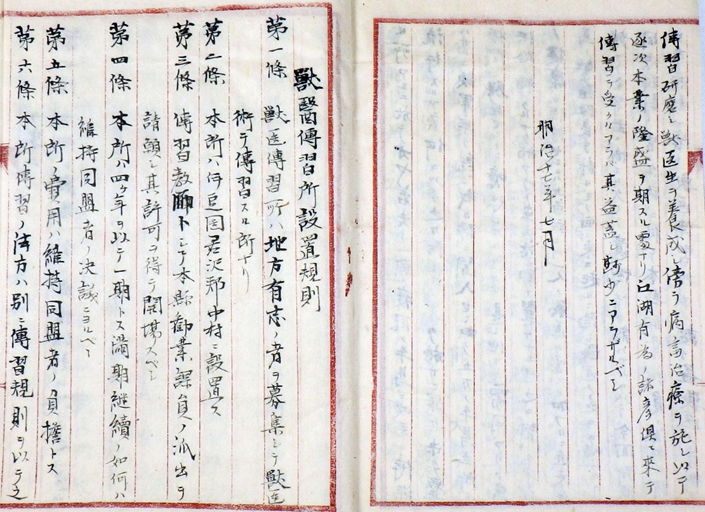 傳習研磨シ獣医生ヲ養成シ傍ラ病畜治療ヲ施シ以テ
逐次本業ノ隆盛ヲ期スルニ要ナリ江湖有為ノ諸彦倶ニ来テ
傳習ヲ受クルアラバ其益蓋シ尠少ニアラザルベシ
明治十七年七月
獸醫傳習所設置規則
第一條 獸医傳習所ハ地方有志ノ者ヲ募集シテ獸医
術ヲ傳習スル所ナリ
第二條 本所ハ伊豆国君沢郡中村ニ設置ス
第三條 傳習教師トシテ本縣勧業課員ノ派出ヲ
請願シ其許可ヲ得テ開場スベシ
第四條 本所ハ四ヶ年ヲ以テ一期トス満期継續ノ如何ハ
維持同盟者ノ決議ニヨルベシ
第五條 本所ノ費用ハ維持同盟者ノ負擔トス
第六條 本所傳習ノ方ハ別ニ傳習規則ヲ以テ之